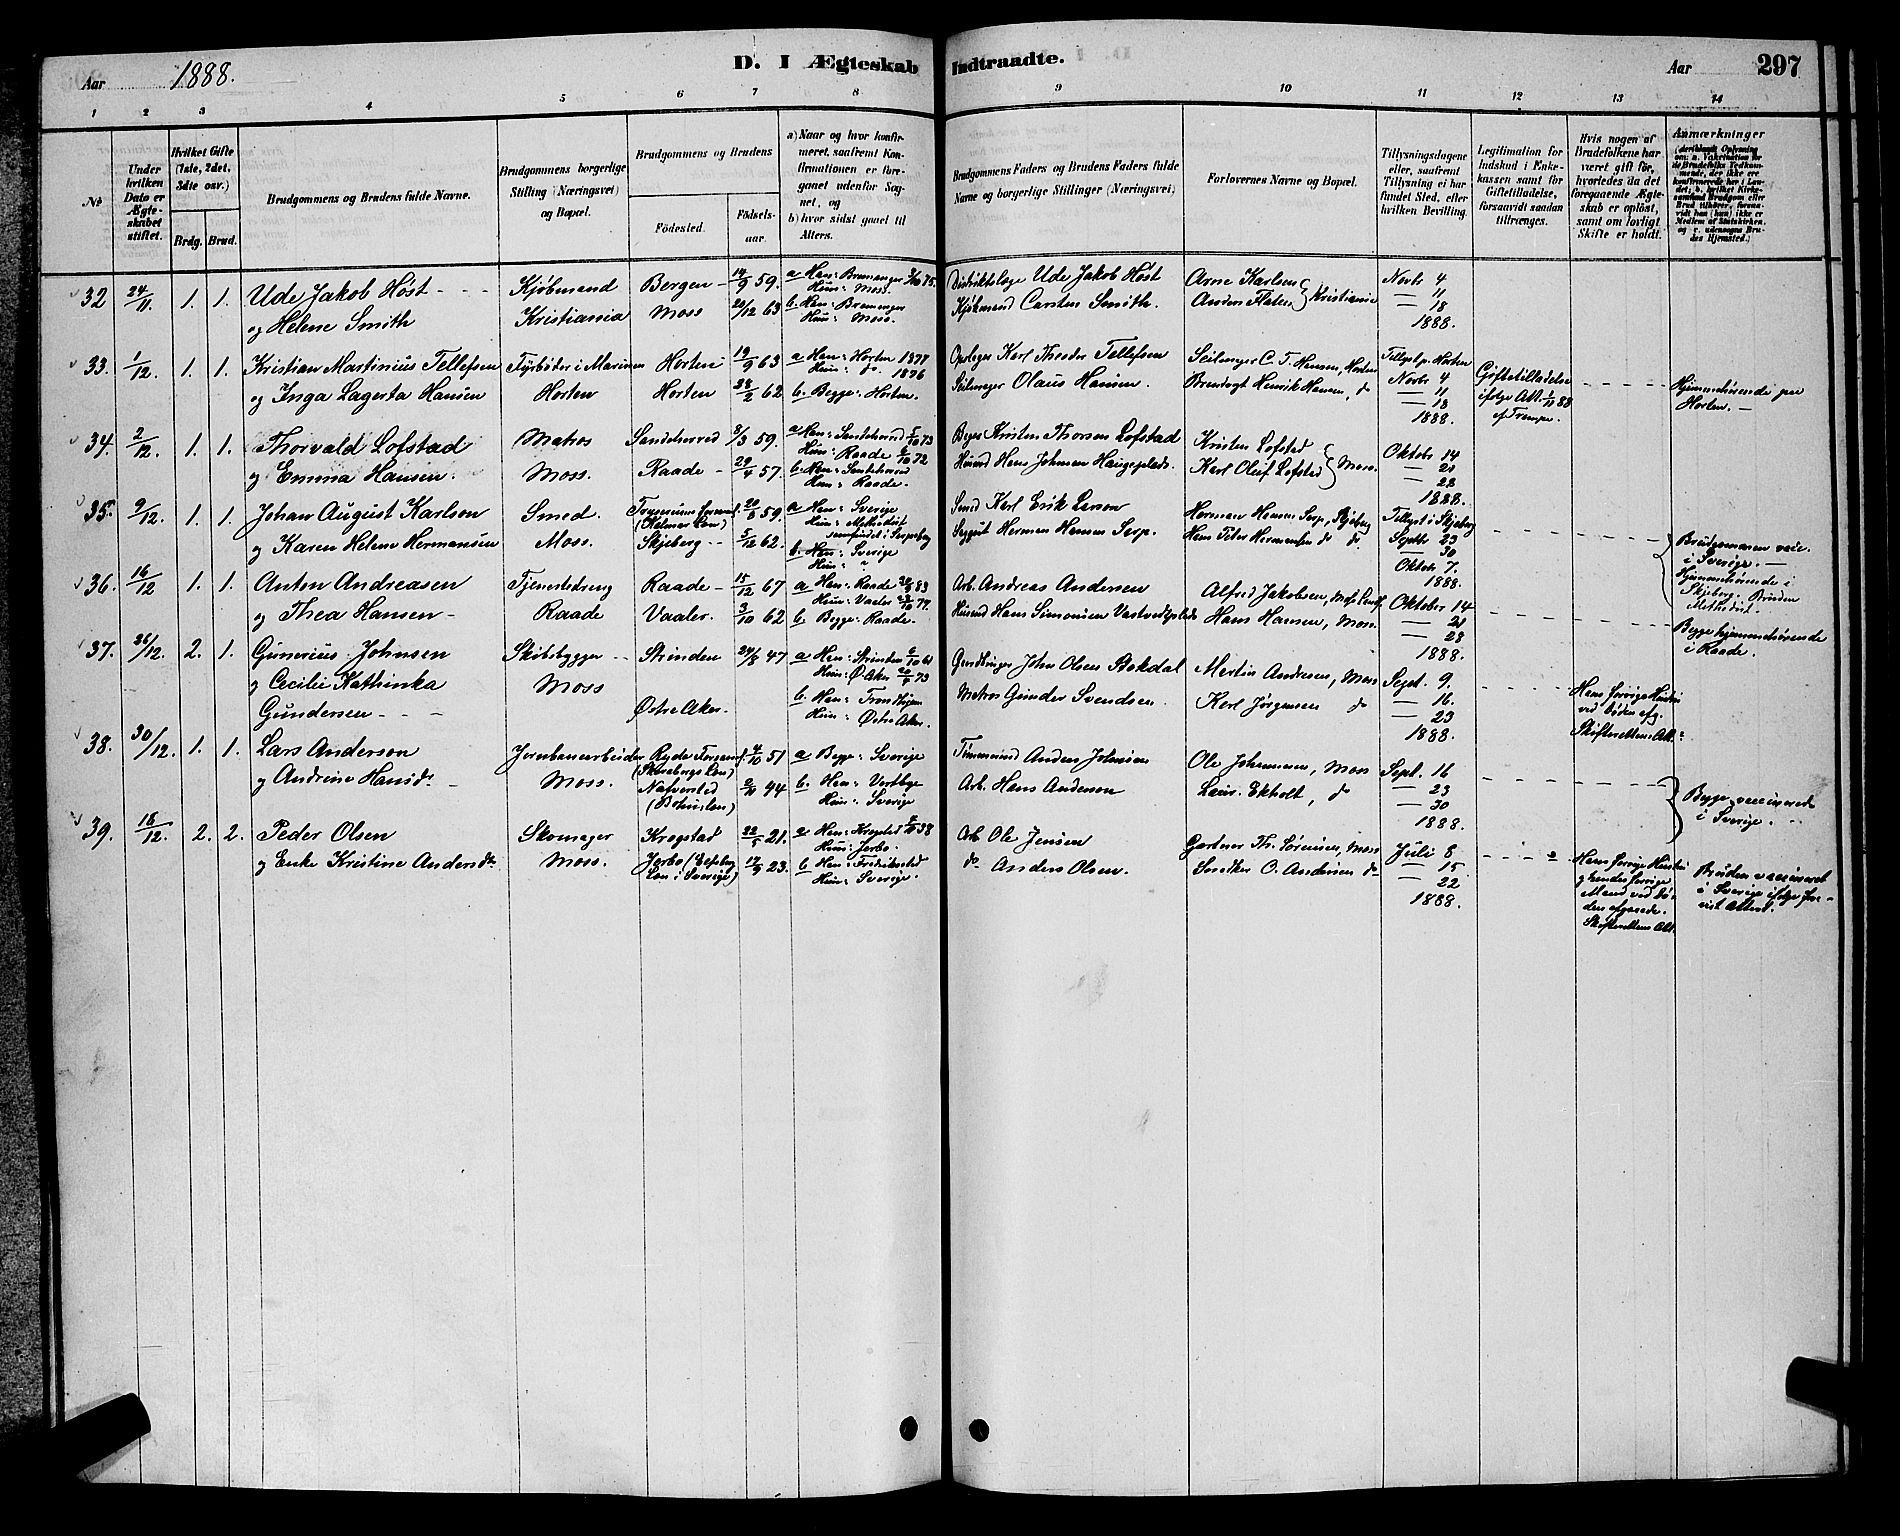 Aar 1888. D. I Ægteskab Indtraadte. Aar 297
1 2 3 4 5 6 7 8 9 10 11 12 13 14
No
Under hvilken Dato er Ægteskabet stiftet.
Hvilket Gifte (1ste, 2det, 3dte osv.)
Brdg. Brud.
Brudgommens og Brudens fulde Navne.
Brudgommens borgerlige Stilling (Næringsvei) og Bopæl.
Brudgommens og Brudens
Födested. Födselsaar.
a) Naar og hvor konfirmeret, saafremt Konfirmationen er foregaaet udenfor Sognet, og
b) hvor sidst gaaet til Alters.
Brudgommens Faders og Brudens Faders fulde Navne og borgerlige Stillinger (Næringsvei)
Forlovernes Navne og Bopæl.
Tillysningsdagene eller, saafremt Tillysning ei har fundet Sted, efter hvilken Bevilling.
Legitimation for Indskud i Enkekassen samt for Giftetilladelse, forsaavidt saadan tiltrænges.
Hvis nogen af Brudefolkene har været gift för, hvorledes da det foregaaende Ægteskab er oplöst, samt om lovligt Skifte er holdt.
Anmærkninger
32 24/11. 1. 1. Ude Jakob Høst Kjøbmand Bergen 14/9 59. a Han: Bremanger 75. Distriktslæge Ude Jakob Høst Arne Karlsen Novbr 4
Hun: Moss. — 11
og Helene Smith Kristiania Moss 22/12 63 b. Han: Bremanger Kjøbmand Carsten Smith. Anders Flaten Kristiania — 18
Hun: Moss. 1888.
33. 1/12. 1. 1. Kristian Martinius Tellefsen Fyrbøder i Marinen Horten 19/9 63 a Han: Horten 1878 Karl Theodor Tellefsen Seilmager C. T. Hansen, Horten Tillyst p. Horten
Hun: do. 1876 Novbr 4 Giftetilladelse
og Inga Lagerta Hansen Horten Horten 28/2 62 b. Begge: Horten. Seilmager Olaus Hansen. Henrik Hansen, do — 11 ifølge Att. 88 Hjemmehørende paa
— 18 Horten. —
1888.
34. 2/12. 1. 1. Thorvald Lofstad Matros Sandeherred 8/3 59. a Han: Sandeherred 5/10 73 Kristen Thorsen Lofstad Kristen Lofstad Oktobr 14
Hun: Raade 6/10 72 — 21
og Emma Hansen. Moss. Raade 29/4 57. b. Han: Sandeherred Husmd Hans Johnsen Haugeplads. Karl Oluf Lofsted Moss. — 28
Hun: Raade. 1888.
35. 9/12. 1. 1. Johan August Karlson Smed. (Kalmar Len) 59. a Han: Sverige Smed Karl Erik Larson Herman Hansen Serp, Skjeberg Tillyst i Skjeberg
Hun: Methodist samfundet i Sarpsborg Septbr 23
og Karen Helene Hermansen Moss. Skjeberg 62. b. Han: Sverige Herman Hansen Serp. Hans Peter Hermansen do do. — 30
Oktobr 7. Brudgommen vacc. i Sverige. —
1888. Hjemmehørende i Skjeberg. Bruden Methodist.
36. 16/12 1. 1. Anton Andreasen Tjenestedreng Raade 15/12 67 a Han: Raade 83 Arb. Andreas Andersen Alfred Jakobsen, Oktober 14
Hun: Vaaler 77. — 21
og Thea Hansen Raade Vaaler. 3/10 62 b Begge: Raade. Husmd Hans Simonsen Hans Hansen, Moss. — 28 Begge hjemmehørende i Raade.
1888.
37. 26/12. 2. 1. Gunerius Johnsen Skibsbygger Strinden 24/8 47 a Han: Strinden 6/10 61 John Olsen Bakdal Martin Andresen, Moss Sept. 9.
Hun: Ø Aker 73
og Cecilie Kathinka Moss b. Han: Trondhjem Matros Gunder Svendsen. Karl Jørgensen do — 16. Hans forrige Hustru ved Døden afg. Skifterettens Att.
Gundersen Østre Aker. Hun: Østre Aker. — 23
1888.
38. 30/12. 1. 1. Lars Anderson Jernbanearbeider Ryde 4/10 51 a Begge: Sverige Anders Johnson Ole Johannesen, Moss Sept. 16
(Skaraborgs Len) — 23
og Andrine Hansdr. Moss. Nafverstad 44 b. Han: Vestby Arb. Hans Anderson Laur. Ekholt, do — 30 Begge vaccinerede i Sverige.
(Bohuslen) Hun: Sverige 1888.
39. 18/12. 2. 2. Peder Olsen Skomager Krogstad 22/5 21. a Han: Krogstad 38 Arb. Ole Jensen Gartner Th. Sørensen, Moss Juli 8
Hun: Jerbo. — 15
og Enke Kristine Andersdr. Moss. Jerbo (Gefleborg Len i Sverige) 23. b Han: Fredrikstad do Anders Olsen. Snedker O. Andersen do — 22
Hun: Sverige. 1888.
Hans forrige Hustru og hendes forrige Mand ved Døden afgaaede. Skifterettens Att.
Bruden vaccineret i Sverige ifølge forevist Attest.